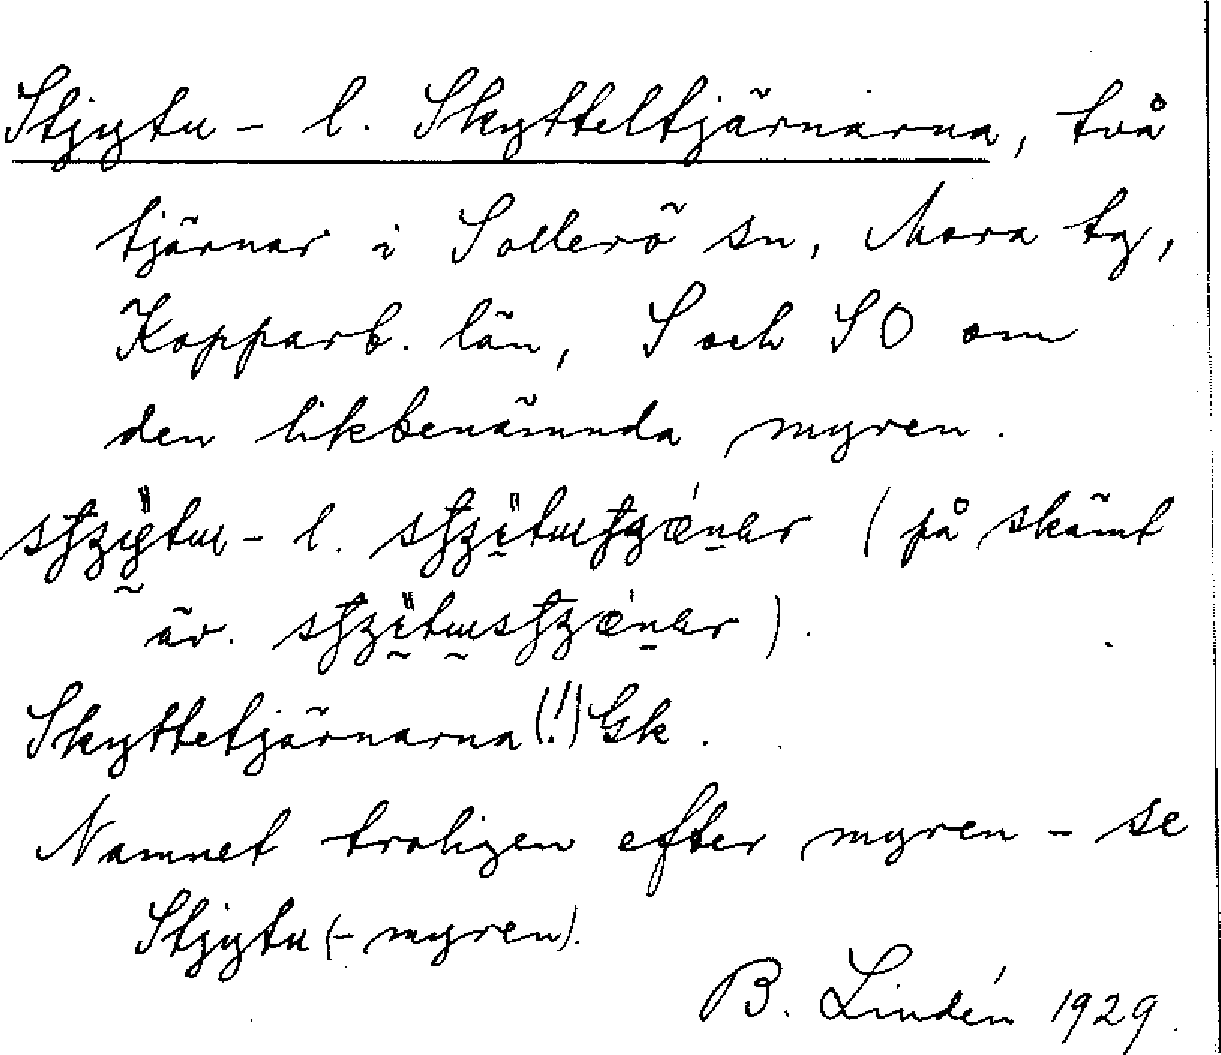 Stjytu- l. Skytteltjärnarna, två
tjärnar i Sollerö sn, Mora tg,
Kopparb. län, S och SO om
den likbenämnda myren.
l. (på skämt
äv. ).
Skyttetjärnarna (!) Gk.
Namnet troligen efter myren - se
Stjytu (- myren).
B. Lindén 1929.